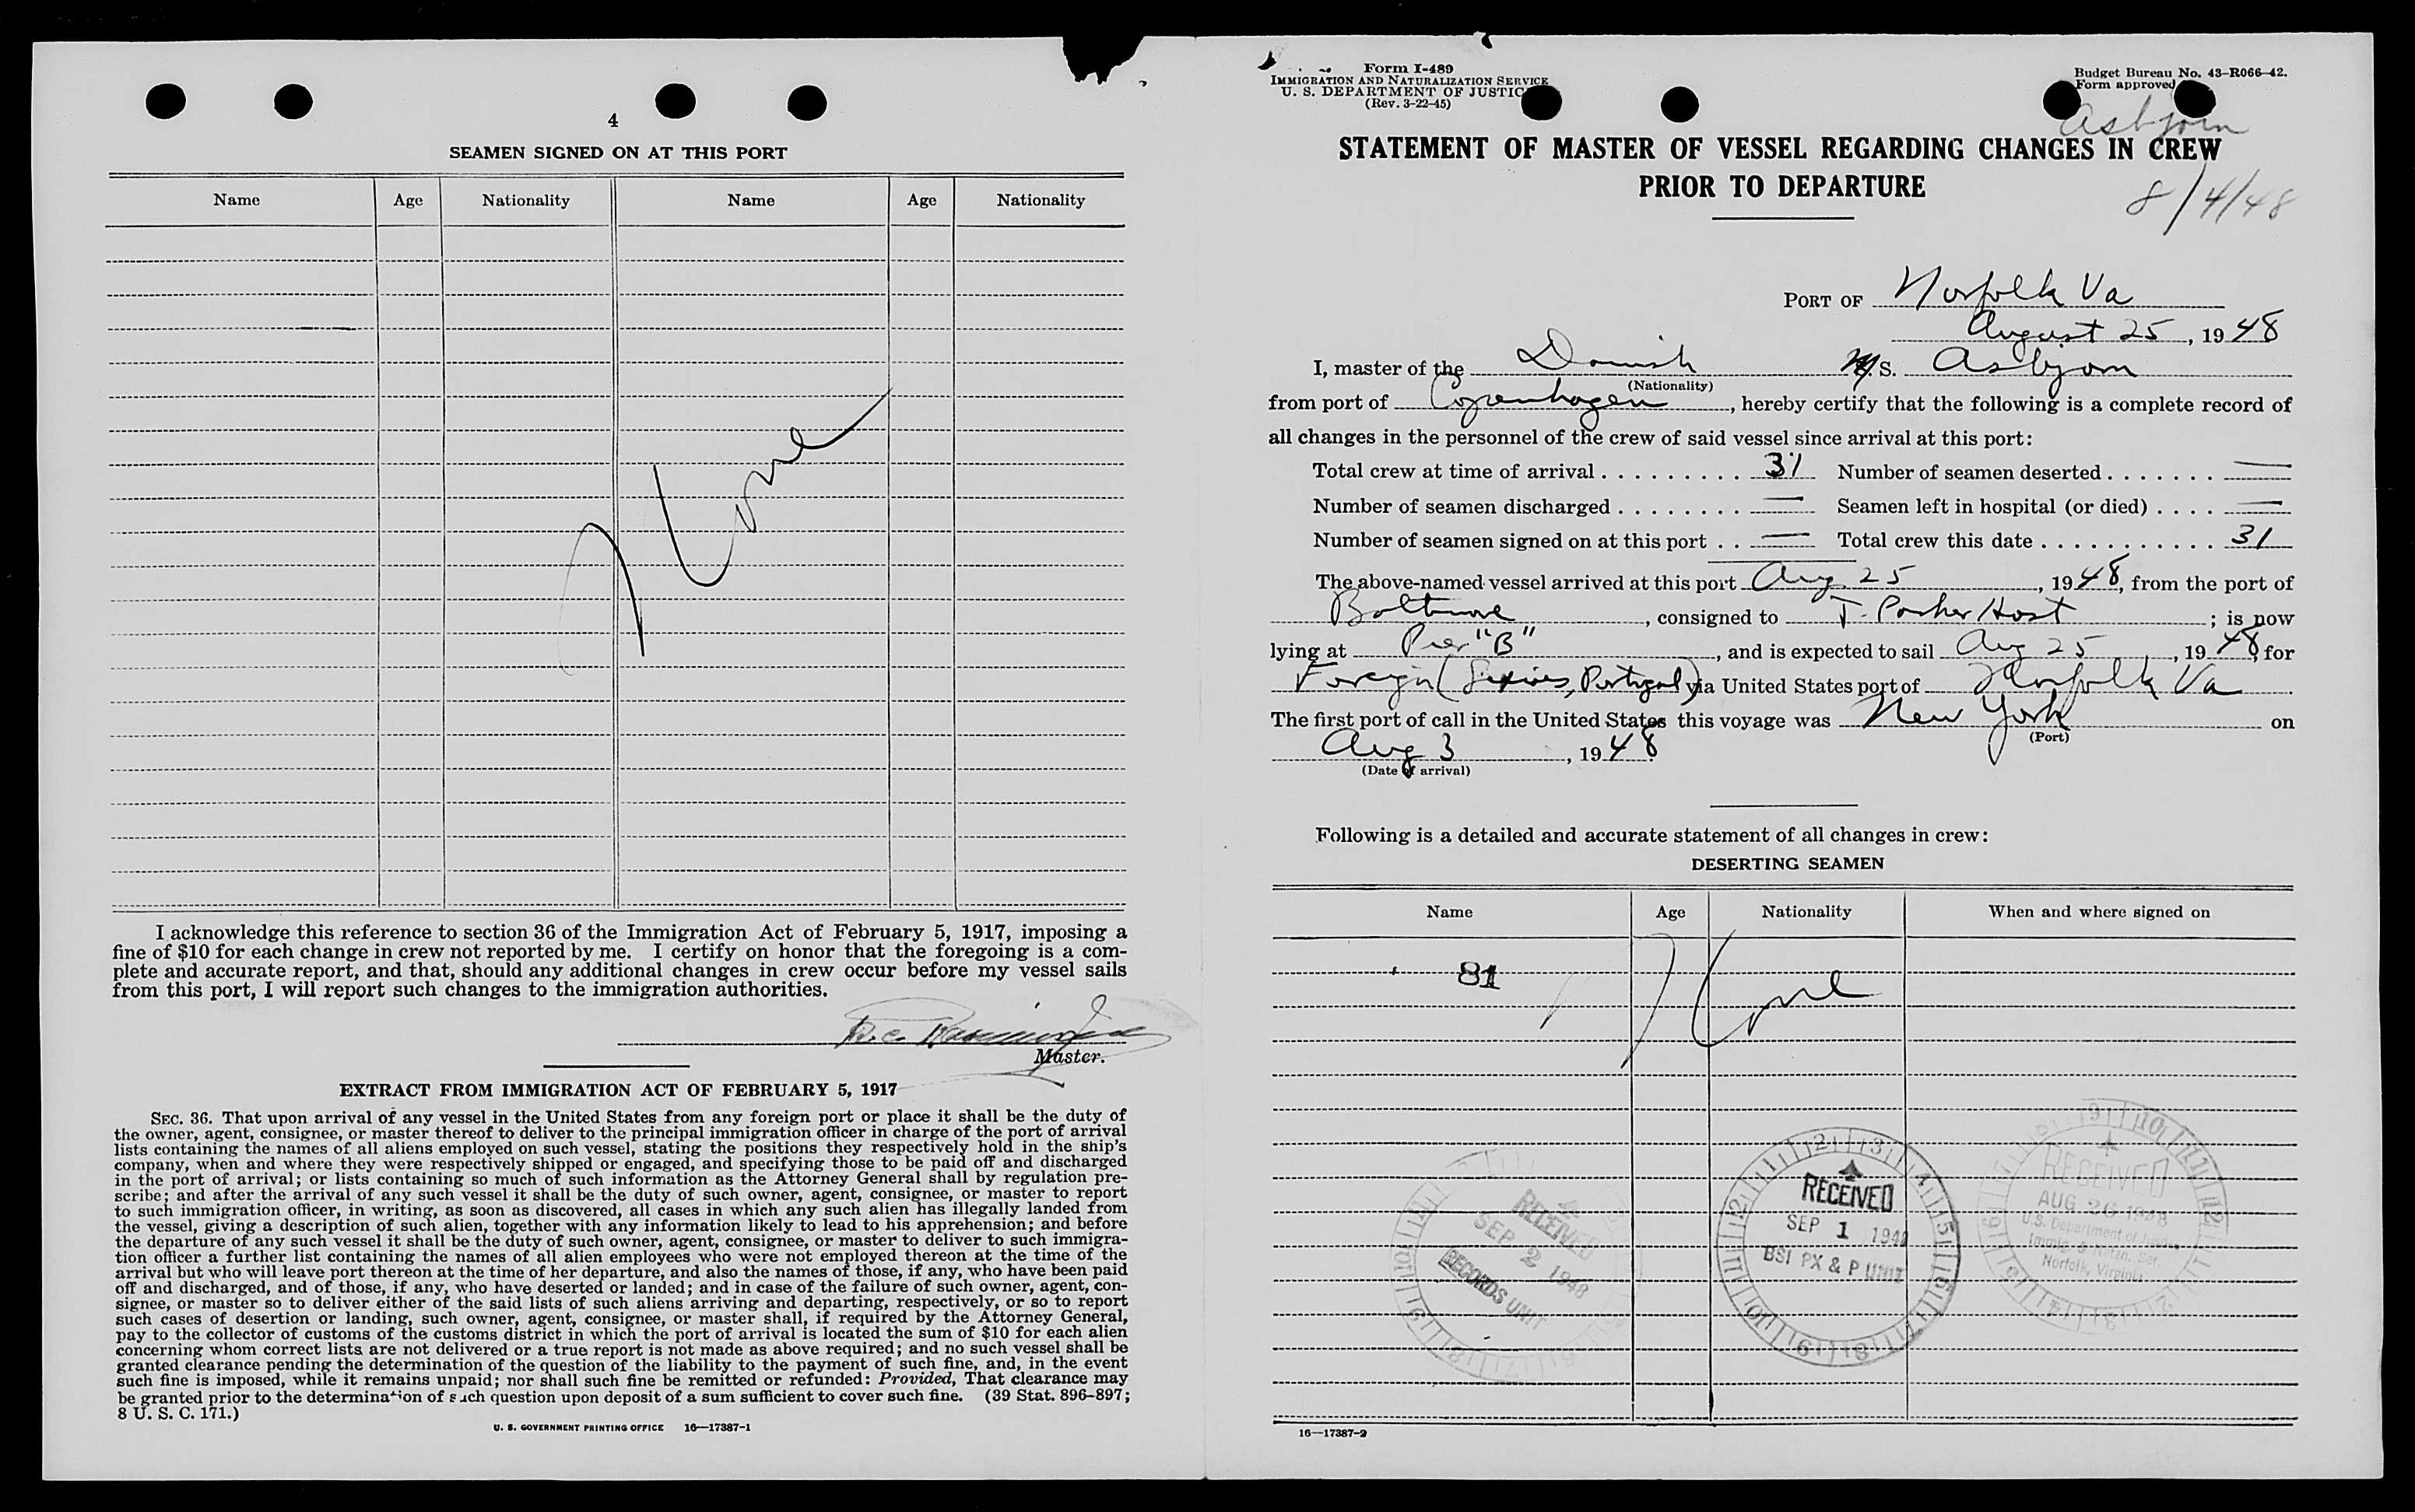 4
SEAMEN SIGNED ON AT THIS PORT
Name Age Nationality Name Age Nationality
None
I acknowledge this reference to section 36 of the Immigration Act of February 5, 1917, imposing a
fine of $10 for each change in crew not reported by me. I certify on honor that the foregoing is a com-
plete and accurate report, and that, should any additional changes in crew occur before my vessel sails
from this port, I will report such changes to the immigration authorities.
Master.
EXTRACT FROM IMMIGRATION ACT OF FEBRUARY 5, 1917
SEC. 36. That upon arrival of any vessel in the United States from any foreign port or place it shall be the duty of
the owner, agent, consignee, or master thereof to deliver to the principal immigration officer in charge of the port of arrival
lists containing the names of all aliens employed on such vessel, stating the positions they respectively hold in the ship's
company, when and where they were respectively shipped or engaged, and specifying those to be paid off and discharged
in the port of arrival; or lists containing so much of such information as the Attorney General shall by regulation pre-
scribe; and after the arrival of any such vessel it shall be the duty of such owner, agent, consignee, or master to report
to such immigration officer, in writing, as soon as discovered, all cases in which any such alien has illegally landed from
the vessel, giving a description of such alien, together with any information likely to lead to his apprehension; and before
the departure of any such vessel it shall be the duty of such owner, agent, consignee, or master to deliver to such immigra-
tion officer a further list containing the names of all alien employees who were not employed thereon at the time of the
arrival but who will leave port thereon at the time of her departure, and also the names of those, if any, who have been paid
off and discharged, and of those, if any, who have deserted or landed; and in case of the failure of such owner, agent, con-
signee, or master so to deliver either of the said lists of such aliens arriving and departing, respectively, or so to report
such cases of desertion or landing, such owner, agent, consignee, or master shall, if required by the Attorney General,
pay to the collector of customs of the customs district in which the port of arrival is located the sum of $10 for each alien
concerning whom correct lists are not delivered or a true report is not made as above required; and no such vessel shall be
granted clearance pending the determination of the question of the liability to the payment of such fine, and, in the event
such fine is imposed, while it remains unpaid; nor shall such fine be remitted or refunded: Provided, That clearance may
be granted prior to the determination of such question upon deposit of a sum sufficient to cover such fine. (39 Stat. 896-897;
8 U. S. C. 171.)
U. S. GOVERNMENT PRINTING OFFICE 16—17387-1
Form I-489
IMMIGRATION AND NATURALIZATION SERVICE
U. S. DEPARTMENT OF JUSTIC
(Rev. 3-22-45)
Budget Bureau No. 43-R066-42.
Form approved
Asbjorn
STATEMENT OF MASTER OF VESSEL REGARDING CHANGES IN CREW
PRIOR TO DEPARTURE
8/4/48
PORT OF Norfolk Va
August 25, 1948
I, master of the Danish M/S. Asbjorn
(Nationality)
from port of Copenhagen, hereby certify that the following is a complete record of
all changes in the personnel of the crew of said vessel since arrival at this port:
Total crew at time of arrival . . . . . . . . . 31 Number of seamen deserted . . . . . . . —
Number of seamen discharged . . . . . . . . — Seamen left in hospital (or died) . . . . —
Number of seamen signed on at this port . . — Total crew this date . . . . . . . . . . . 31
The above-named vessel arrived at this port Aug 25, 1948, from the port of
Baltimore, consigned to T. Parker Host; is now
lying at Pier "B", and is expected to sail Aug 25, 1948, for
Foreign ( Portugal) via United States port of Norfolk Va.
The first port of call in the United States this voyage was New York on
(Port)
Aug 3, 1948.
(Date of arrival)
Following is a detailed and accurate statement of all changes in crew:
DESERTING SEAMEN
Name Age Nationality When and where signed on
81
None
RECEIVED
SEP 2 1948
RECORDS UNIT
RECEIVED
SEP 1 1948
BSI PX & P UNIT
RECEIVED
AUG 26 1948
U.S. Department of Justice
Immig. & Natzn. Ser.
Norfolk, Virginia
16—17387-2